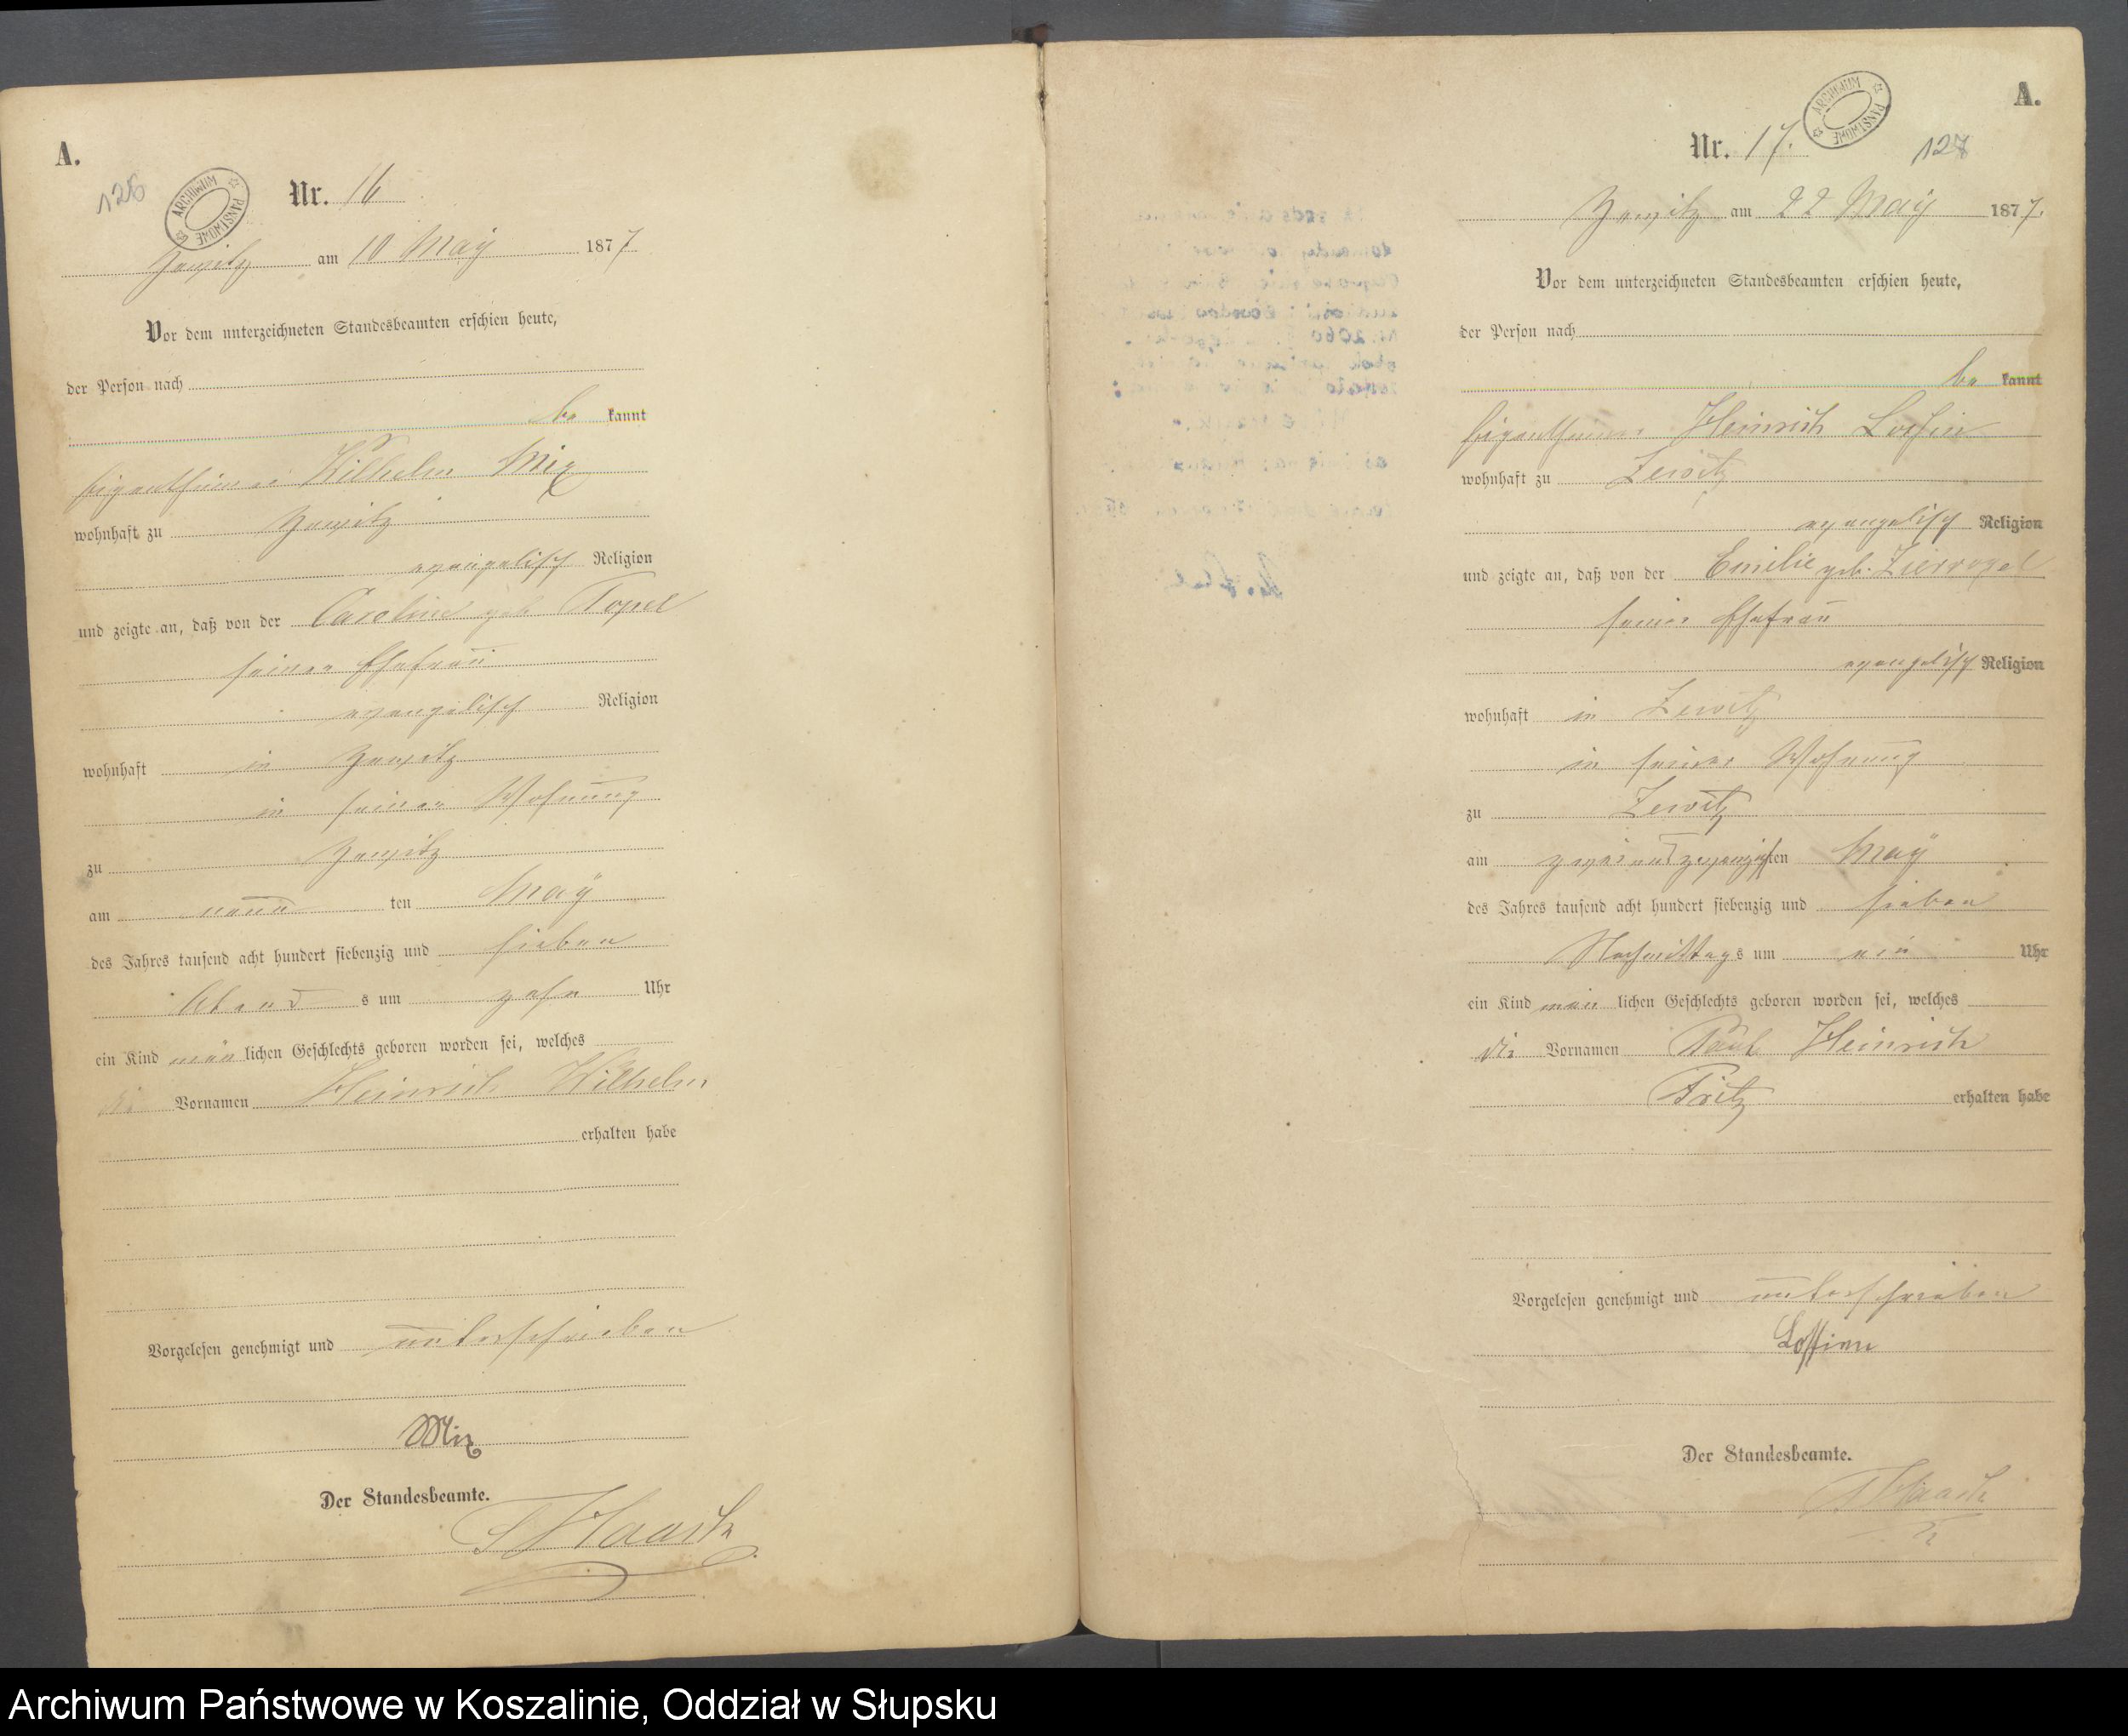 A.
126
ARCHIWUM PAŃSTWOWE
Nr. 16
Zewitz am 10 Maÿ 1877
Vor dem unterzeichneten Standesbeamten erschien heute,
der Person nach
be kannt
Eigenthümer Wilhelm Mix
wohnhaft zu Zewitz
evangelisch Religion
und zeigte an, daß von der Caroline geb Topel
seiner Ehefrau
evangelisch Religion
wohnhaft in Zewitz
in seiner Wohnung
zu Zewitz
am neun ten Maÿ
des Jahres tausend acht hundert siebenzig und sieben
Abend s um zehn Uhr
ein Kind män lichen Geschlechts geboren worden sei, welches
die Vornamen Heinrich Wilhelm
erhalten habe
Vorgelesen genehmigt und unterschrieben
Mix
Der Standesbeamte.
Haack
A.
ARCHIWUM PAŃSTWOWE
Nr. 17.
127
Zewitz am 22 Maÿ 1877.
Vor dem unterzeichneten Standesbeamten erschien heute,
der Person nach
be kannt
Eigenthümer Heinrich Lossin
wohnhaft zu Zewitz
evangelisch Religion
und zeigte an, daß von der Emilie geb. Ziervogel
seiner Ehefrau
evangelisch Religion
wohnhaft in Zewitz
in seiner Wohnung
zu Zewitz
am zwei und zwanzigsten Maÿ
des Jahres tausend acht hundert siebenzig und sieben
Nachmittags um ein Uhr
ein Kind män lichen Geschlechts geboren worden sei, welches
die Vornamen Paul Heinrich
Fritz erhalten habe
Vorgelesen genehmigt und unterschrieben
Lossinn
Der Standesbeamte.
Haack
Archiwum Państwowe w Koszalinie, Oddział w Słupsku